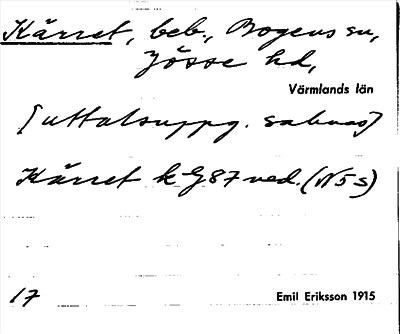 Kärret, beb., Bogens sn,
Jösse hd,
Värmlands län
[uttalsuppg. saknas]
Kärret k G 87 ned. (N5s)
17
Emil Eriksson 1915